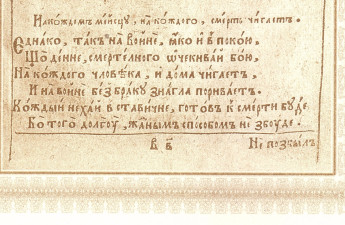 На кождомъ мѣйсцу, на кождого, смерть чигаетъ.
Еднако, такъ на войнѣ, яко и в покою,
Що денне, смертелного ѡчекивай бою,
На кождого чловѣка, и дома чигаетъ,
И на войнѣ без браку знагла пориваетъ.
Кождый нехай в ставичне, готов к смерти буде
Бо того долгоу, жаным способом не збоуде.
В в Не позбыл